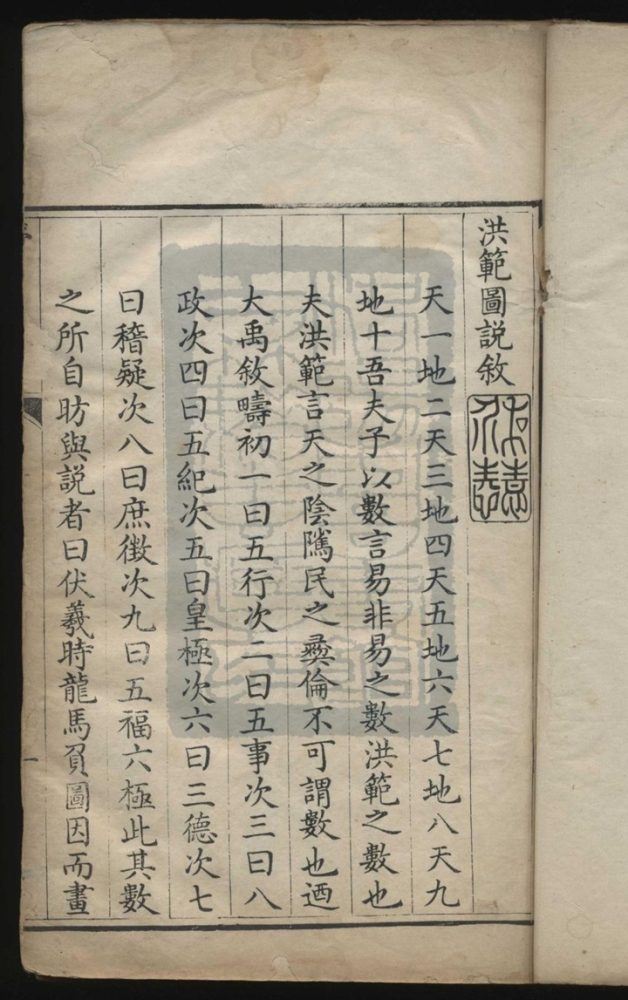 洪範圖說敘
天一地二天三地四天五地六天七地八天九
地十吾夫子以數言易非易之數洪範之數也
夫洪範言天之陰隲民之彝倫不可謂數也迺
大禹敘疇初一曰五行次二曰五事次三曰八
政次四曰五紀次五曰皇極次六曰三德次七
曰稽疑次八曰庶徵次九曰五福六極此其數
之所自昉與説者曰伏羲時龍馬負圖因而畫